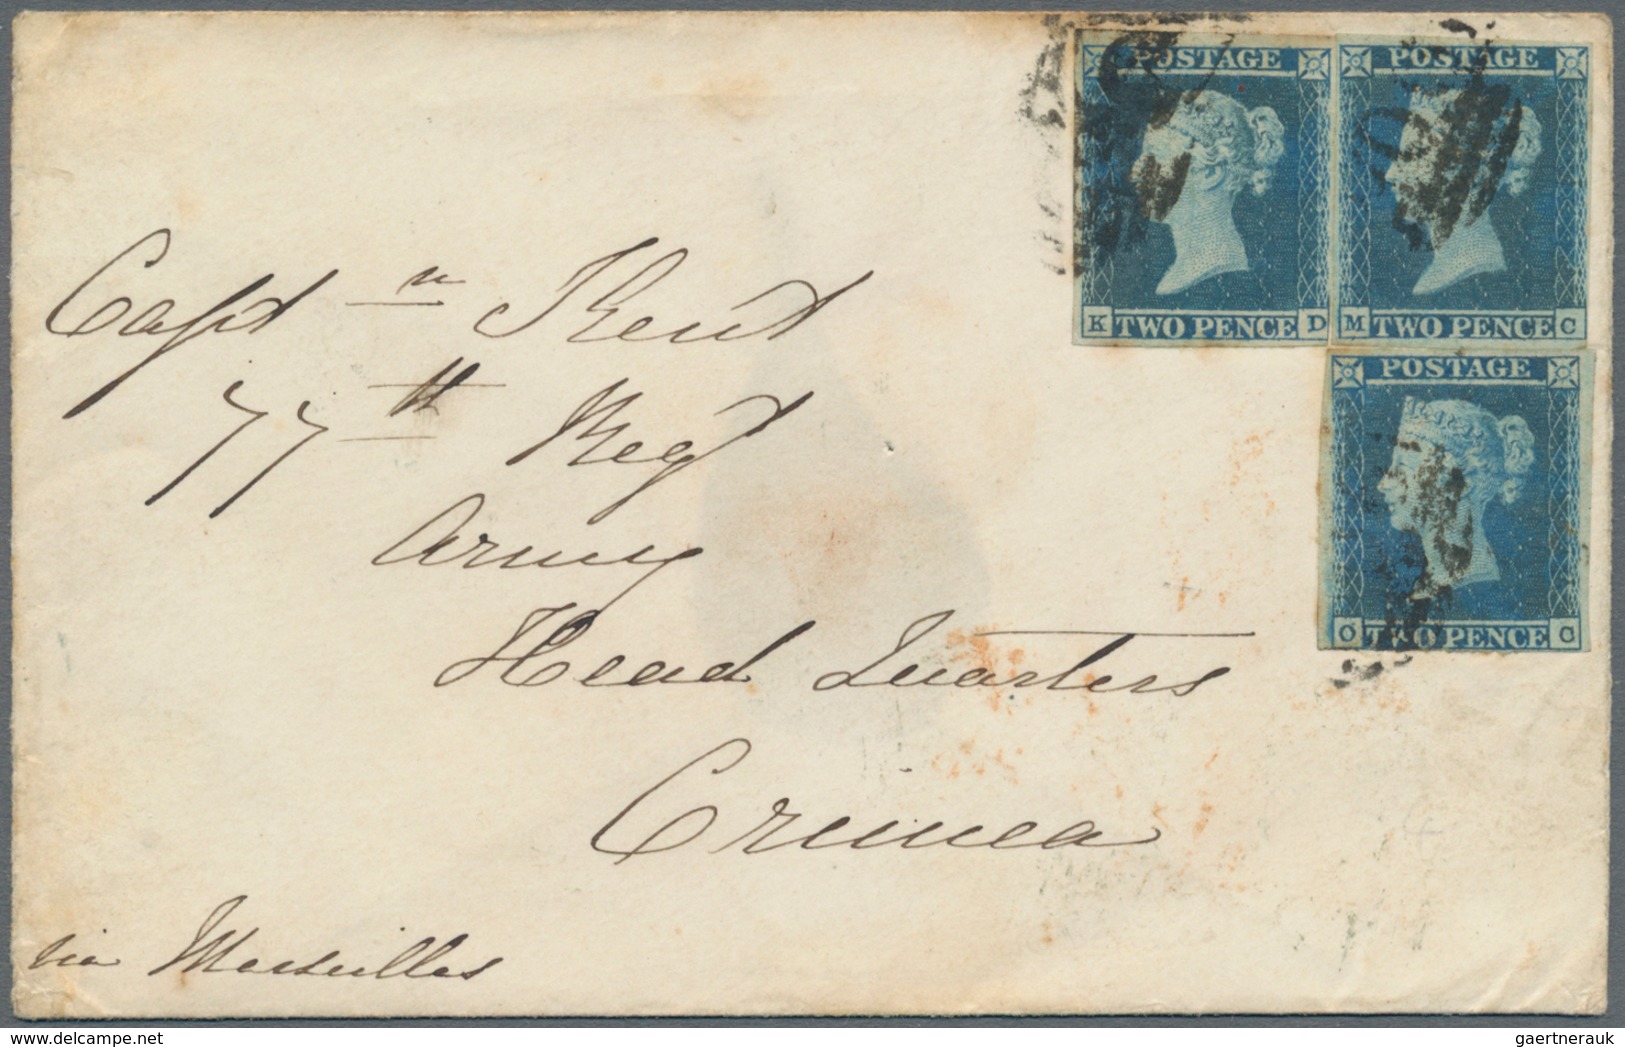 POSTAGE POSTAGE
K TWO PENCE D M TWO PENCE C
POSTAGE
O TWO PENCE C
Captn Kent
77th Regt
Army
Head Quarters
Crimea
via Marseilles
gaertnerauk